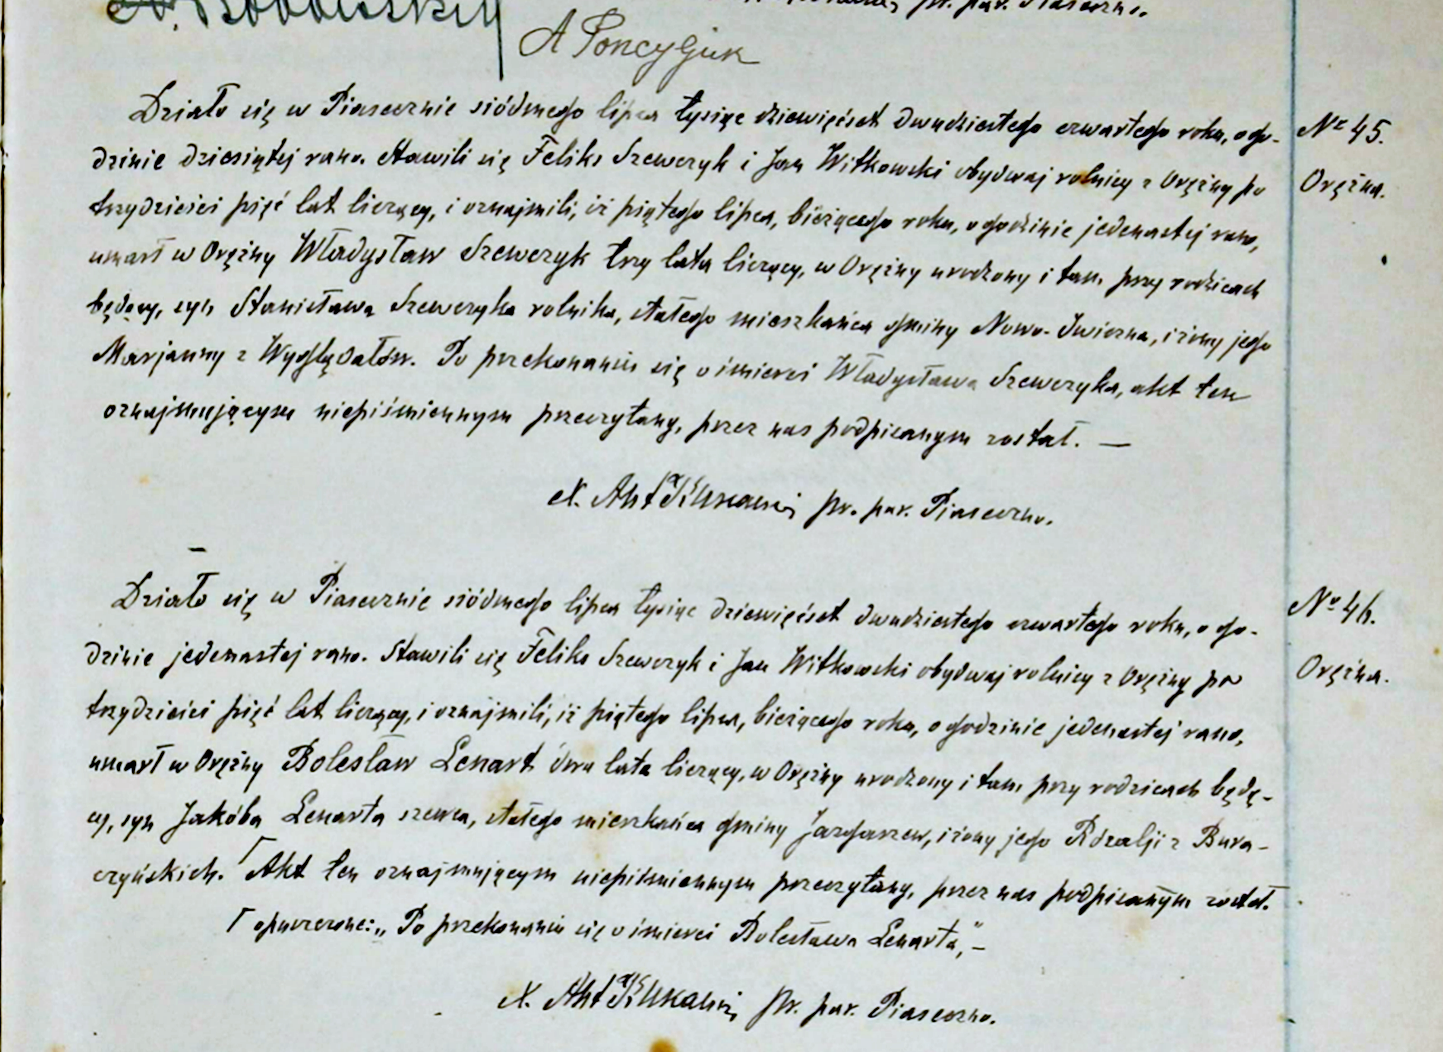 pr. par. Piaseczno.
A Poncyljusz
Działo się w Piasecznie siódmego lipca tysiąc dziewięćset dwudziestego czwartego roku, o go-
dzinie dziesiątej rano. Stawili się Feliks Szewczyk i Jan Witkowski obydwaj rolnicy z Orężny po
trzydzieści pięć lat liczący, i oznajmili, iż piątego lipca, bieżącego roku, o godzinie jedenastej rano,
umarł w Orężny Władysław Szewczyk trzy lata liczący, w Orężny urodzony i tam przy rodzicach
będący, syn Stanisława Szewczyka rolnika, stałego mieszkańca gminy Nowo-Iwiczna, i żony jego
Marjanny z Wyglądałów. Po przekonaniu się o śmierci Władysława Szewczyka, akt ten
oznajmującym niepiśmiennym przeczytany, przez nas podpisanym został. —
X. Ant pr. par. Piaseczno.
Nº 45.
Orężna.
Działo się w Piasecznie siódmego lipca tysiąc dziewięćset dwudziestego czwartego roku, o go-
dzinie jedenastej rano. Stawili się Feliks Szewczyk i Jan Witkowski obydwaj rolnicy z Orężny po
trzydzieści pięć lat liczący, i oznajmili, iż piątego lipca, bieżącego roku, o godzinie jedenastej rano,
umarł w Orężny Bolesław Lenart dwa lata liczący, w Orężny urodzony i tam przy rodzicach będą-
cy, syn Jakóba Lenarta szewca, stałego mieszkańca gminy Jazgarzew, i żony jego Rozalji z Bura-
czyńskich. Γ Akt ten oznajmującym niepiśmiennym przeczytany, przez nas podpisanym został.
Γ opuszczone: „Po przekonaniu się o śmierci Bolesława Lenarta," —
X. Ant pr. par. Piaseczno.
Nº 46.
Orężna.